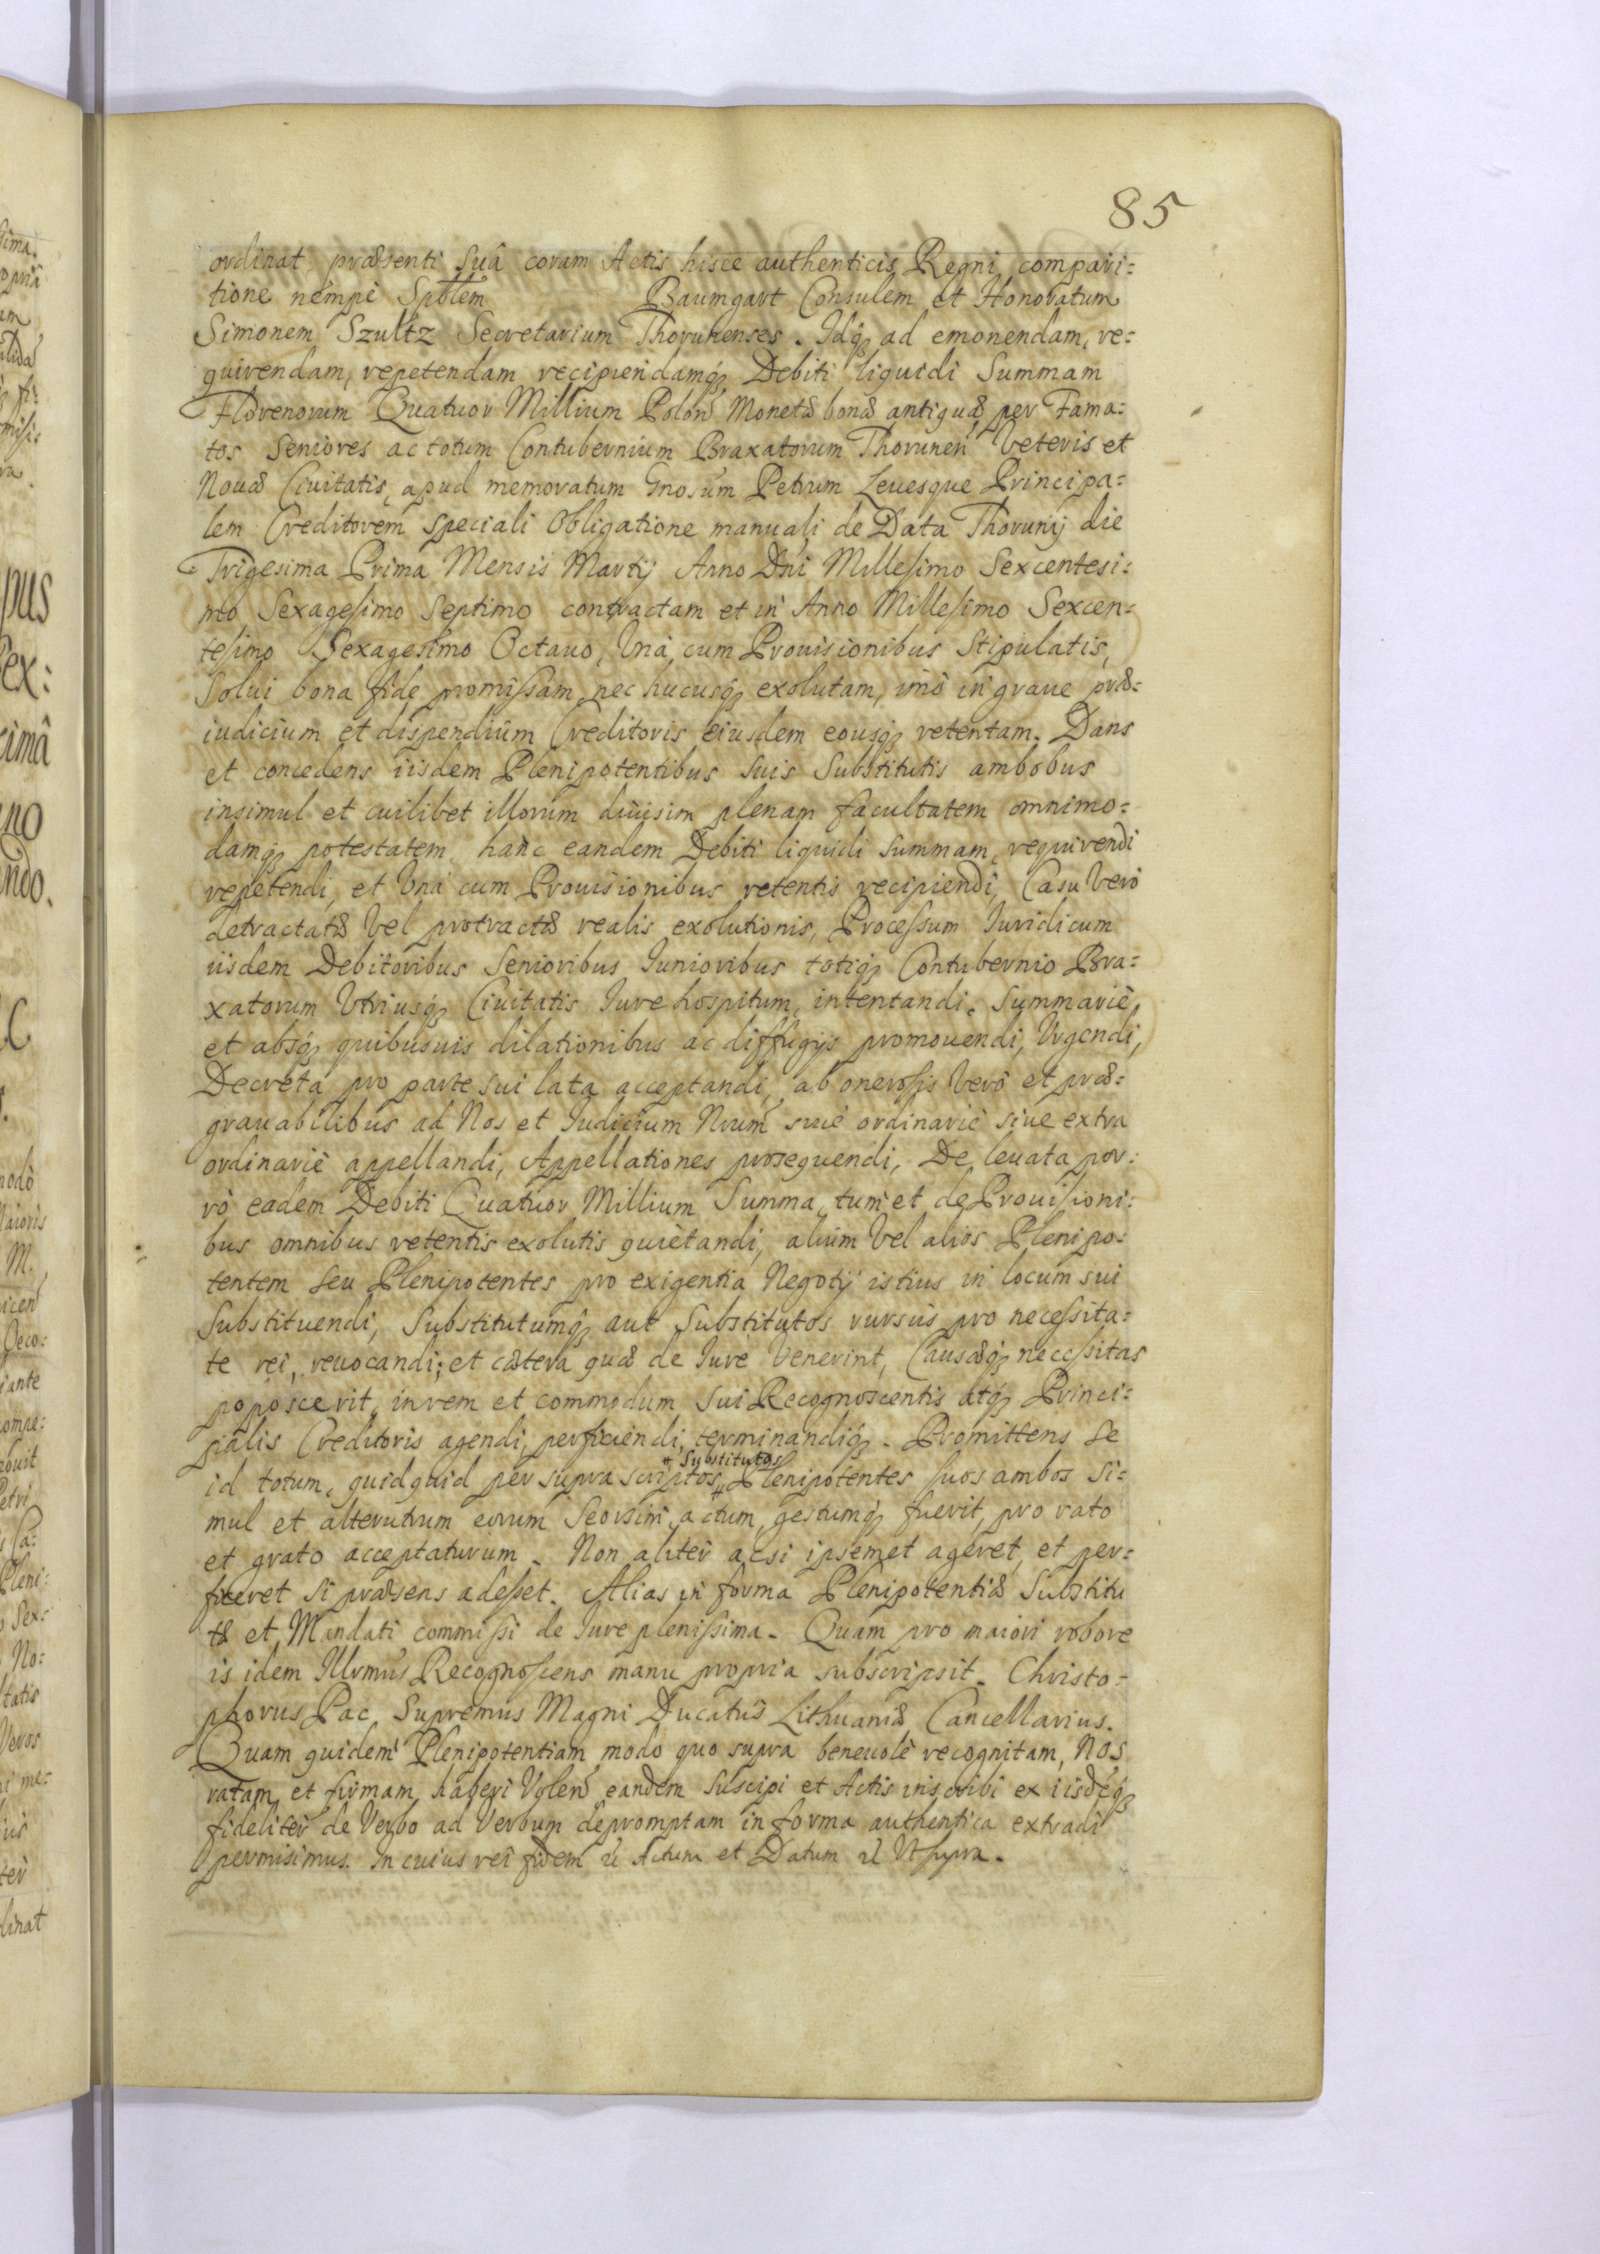 85
ordinat, præsenti suâ coram Actis hisce authenticis Regni compari:
tione nempè Spblem Baumgart Consulem et Honoratum
Simonem Szultz Secretarium Thorunenses. Idq; ad emonendam, re:
quirendam, repetendam recipiendamq; Debiti liquidi Summam
Florenorum Quatuor Millium Polon Monetæ bonæ antiquæ per Fama:
tos Seniores ac totum Contubernium Braxatorum Thorunen Veteris et
Nouæ Ciuitatis, apud memoratum Gnosum Petrum Leuesque Principa:
lem Creditorem speciali Obligatione manuali de Data Thorunij die
Trigesima Prima Mensis Martij Anno Dni Millesimo Sexcentesi:
mo Sexagesimo Septimo contractam et in Anno Millesimo Sexcen:
tesimo Sexagesimo Octauo, Unà cum Prouisionibus Stipulatis,
Solui bona fide promissam nec hucusq; exolutam, imò in graue præ:
iudicium et dispendium Creditoris eiusdem eousq; retentam. Dans
et concedens iisdem Plenipotentibus suis Substitutis ambobus
insimul et cuilibet illorum diuisim plenam facultatem omnimo:
damq; potestatem hanc eandem Debiti liquidi summam, requirendi
repetendi, et Unà cum Prouisionibus retentis recipiendi, Casu Verò
detractatæ Vel protractæ realis exolutionis, Processum Iuridicum
iisdem Debitoribus Senioribus Iunioribus totiq; Contubernio Bra:
xatorum Utriusq; Ciuitatis Iure hospitum, intentandi. Summariè
et absq; quibusuis dilationibus ac diffugijs promouendi, Urgendi,
Decreta pro parte sui lata acceptandi, ab onerosis Verò et præ:
grauabilibus ad Nos et Iudicium Nrum siuè ordinariè siue extra
ordinariè appellandi, Appellationes prosequendi, De leuata por:
rò eadem Debiti Quatuor Millium Summa, tum et de Prouisioni:
bus omnibus retentis exolutis quiètandi, alium Vel alios Plenipo:
tentem seu Plenipotentes pro exigentia Negotij istius in locum sui
Substituendi, Substitutumq; aut Substitutos rursus pro necessita:
te rei, reuocandi; et cætera quæ de Iure Venerint, Causæq; necessitas
poposcerit, in rem et commodum Sui Recognoscentis atq; Princi:
palis Creditoris agendi, perficiendi, terminandiq;. Promittens se
+ Substitutos
id totum, quidquid per supra scriptos Plenipotentes suos ambos si:
mul et alterutrum eorum Seorsim actum, gestumq; fuerit, pro rato
et grato acceptaturum. Non aliter acsi ipsemet ageret, et per:
ficeret si præsens adesset. Alias in forma Plenipotentiæ Substitu
tæ et Mandati commissi de Iure plenissima. Quam pro maiori robore
is idem Illrmus Recognoscens manu propria subscripsit. Christo:
phorus Pac Supremus Magni Ducatus Lithuaniæ Cancellarius.
Quam quidem Plenipotentiam modo quo supra beneuolè recognitam, Nos
ratam et firmam haberi Volen eandem suscipi et Actis inscribi ex iisdéq;
fideliter de Verbo ad Verbum depromptam in forma authentica extradi
permisimus. In cuius rei fidem Actum et Datum Ut supra.